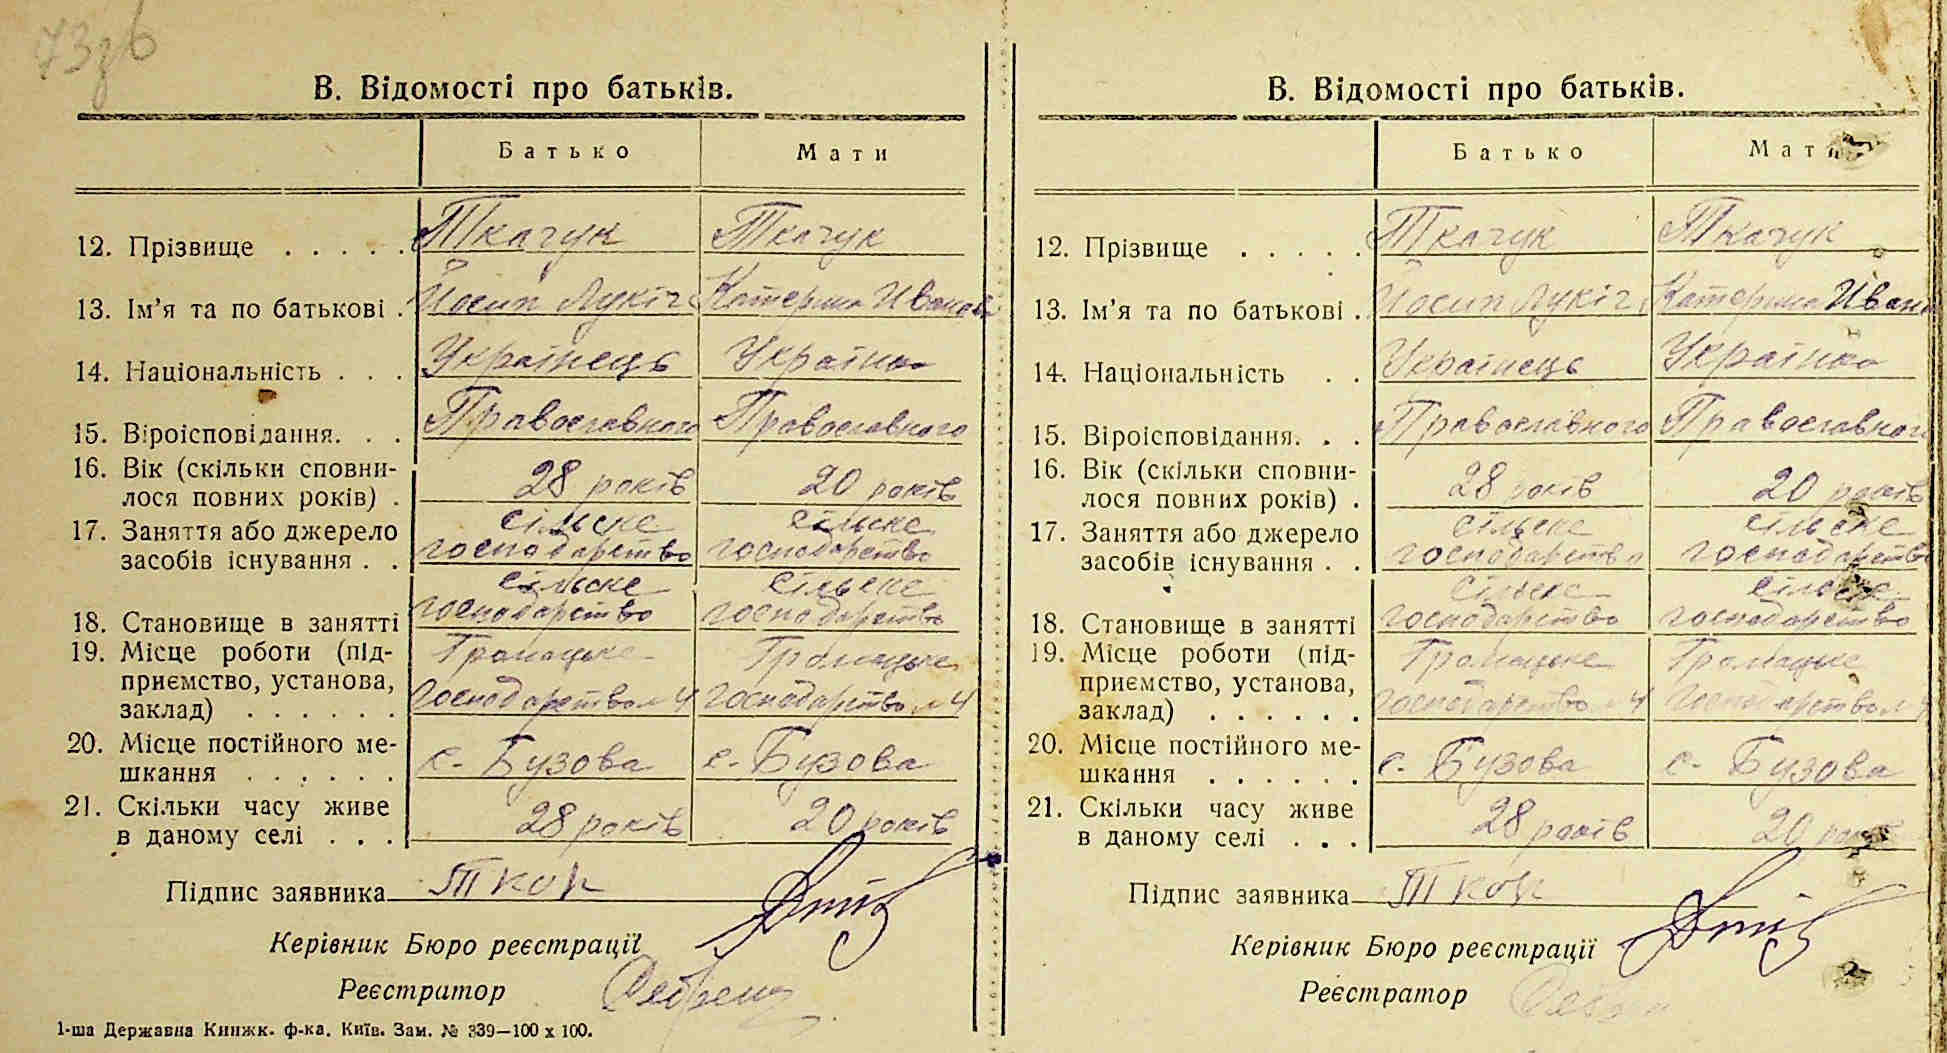 73зв
В. Відомості про батьків.
Батько Мати
12. Прізвище . . . . . Ткачук Ткачук
13. Ім’я та по батькові . Йосип Лукіч Катерина Иванов
14. Національність . . . Українець Українка
15. Віроісповідання. . . Православного Православного
16. Вік (скільки сповни-
лося повних років) . 28 років 20 років
17. Заняття або джерело сільске сільске
засобів існування . . господарство господарство
сільске сільске
18. Становище в занятті господарство господарство
19. Місце роботи (під- Громацьке Громацьке
приємство, установа,
заклад) . . . . . . господарство №4 господарство №4
20. Місце постійного ме-
шкання . . . . . . с. Бузова с. Бузова
21. Скільки часу живе
в даному селі . . . 28 років 20 років
Підпис заявника
Керівник Бюро реєстрації
Реєстратор
1-ша Державна Книжк. ф-ка. Київ. Зам. № 339—100 х 100.
В. Відомості про батьків.
Батько Мати
12. Прізвище . . . . . Ткачук Ткачук
13. Ім’я та по батькові . Йосип Лукіч Катерина Иван
14. Національність . . Українець Українка
15. Віроісповідання. . . Православного Православного
16. Вік (скільки сповни-
лося повних років) . 28 років 20 років
17. Заняття або джерело сільске сільске
засобів існування . . господарство господарство
сільске сільске
18. Становище в занятті господарство господарство
19. Місце роботи (під- Громацьке Громацьке
приємство, установа,
заклад) . . . . . . господарство №4 господарство №
20. Місце постійного ме-
шкання . . . . . . с. Бузова с. Бузова
21. Скільки часу живе
в даному селі . . . 28 років 20 років
Підпис заявника
Керівник Бюро реєстрації
Реєстратор